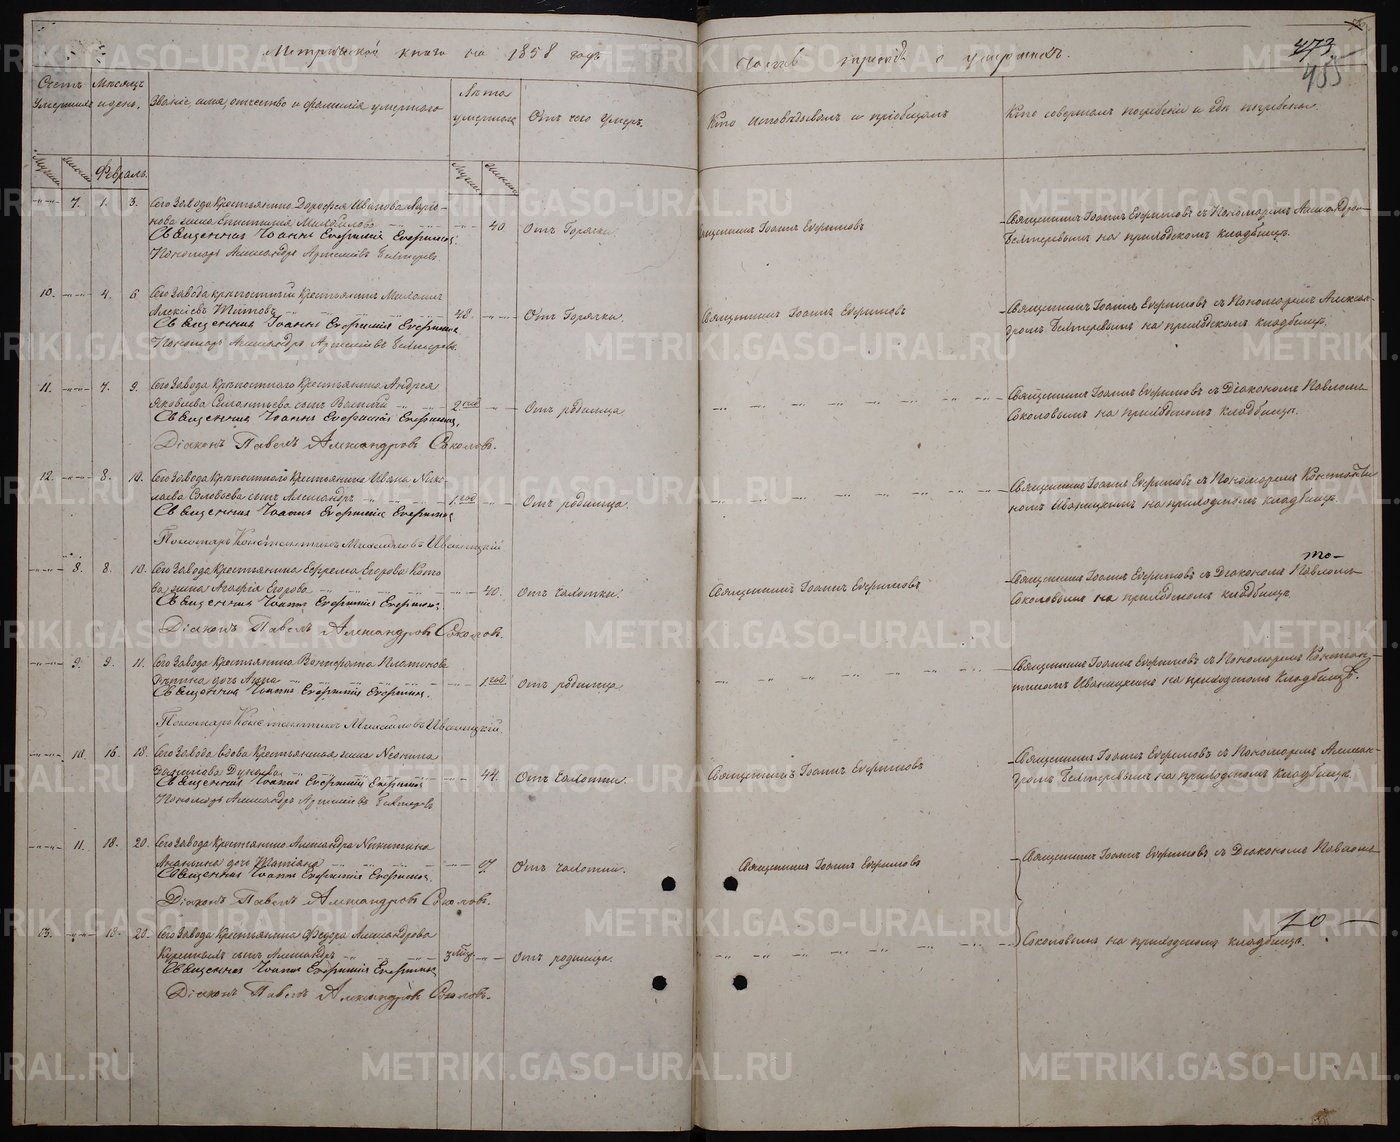 Метрической книги на 1858 годъ
Часть третія о умершихъ.
473
455
Счетъ умершихъ
Мѣсяцъ и день.
Званіе имя, отчество и фамилія умершаго
Лѣта умершаго
Отъ чего умеръ.
Кто исповѣдывалъ и пріобщалъ
Кто совершалъ погребеніе и гдѣ погребены.
Февраль.
7. 1. 3. Сего Завода Крестьянина Дорофея Иванова
жена Епистимія Михайлова 40. Отъ Горячки
Священникъ Іоаннъ Евфимовъ
Священникъ Іоаннъ Евфимовъ съ Пономаремъ
Бехтеревымъ на приходскомъ кладбищѣ.
Священникъ Іоаннъ
Пономарь Александръ Артемьевъ Бехтеревъ.
10. 4. 6. Сего Завода крѣпостной Крестьянинъ
Алексѣевъ Титовъ 48. Отъ Горячки.
Священникъ Іоаннъ Евфимовъ
Священникъ Іоаннъ Евфимовъ съ Пономаремъ Алексан-
дромъ Бехтеревымъ на приходскомъ кладбищѣ.
Священникъ Іоаннъ
Пономарь Александръ Артемьевъ Бехтеревъ.
11. 7. 9. Сего Завода Крѣпостнаго Крестьянина Андрея
Яковлева сынъ Василій 2 год Отъ родимца
Священникъ Іоаннъ Евфимовъ съ Діакономъ Павломъ
Соколовымъ на приходскомъ кладбищѣ.
Священникъ Іоаннъ
Діаконъ Павелъ Александровъ Соколовъ.
12. 8. 10. Сего Завода Крѣпостнаго Крестьянина Ивана Нико-
лаева Соловьева сынъ Александръ 1 год Отъ родимца.
Священникъ Іоаннъ Евфимовъ съ Пономаремъ Константи
номъ Иваницкимъ на приходскомъ кладбищѣ.
Священникъ Іоаннъ
Пономарь Константинъ Михайловъ Иваницкій
8. 8. 10. Сего Завода Крестьянина Ефрема Егорова Кото
ва жена Агафія Егорова 40. Отъ чахотки.
Священникъ Іоаннъ Евфимовъ
Священникъ Іоаннъ Евфимовъ съ Діакономъ Павломъ
Соколовымъ на приходскомъ кладбищѣ.
Священникъ Іоаннъ
Діаконъ Павелъ Александровъ Соколовъ.
9. 9. 11. Сего Завода Крестьянина Вонифатія Платонова
дочь Анна 1 год Отъ родимца
Священникъ Іоаннъ Евфимовъ съ Пономаремъ Констан-
тиномъ Иваницкимъ на приходскомъ кладбищѣ.
Священникъ Іоаннъ
Пономарь Константинъ Михайловъ Иваницкій
10. 16. 18. Сего Завода вдова Крестьянская жена
Данилова Дунаева 44. Отъ Чахотки.
Священникъ Іоаннъ Евфимовъ
Священникъ Іоаннъ Евфимовъ съ Пономаремъ Алексан-
дромъ Бехтеревымъ на приходскомъ кладбищѣ.
Священникъ Іоаннъ
Пономарь Александръ Артемьевъ Бехтеревъ
11. 18. 20. Сего Завода Крестьянина Александра Никитина
Ананьина дочь Татіана 7. Отъ чахотки.
Священникъ Іоаннъ Евфимовъ
Священникъ Іоаннъ Евфимовъ съ Діакономъ Павломъ
Священникъ Іоаннъ
Діаконъ Павелъ Александровъ Соколовъ.
13. 18. 20. Сего Завода Крестьянина Федора Александрова
сынъ Александръ Отъ родимца.
Соколовымъ на приходскомъ кладбищѣ.
Священникъ Іоаннъ
Діаконъ Павелъ Александровъ Соколовъ.
METRIKI.GASO-URAL.RU